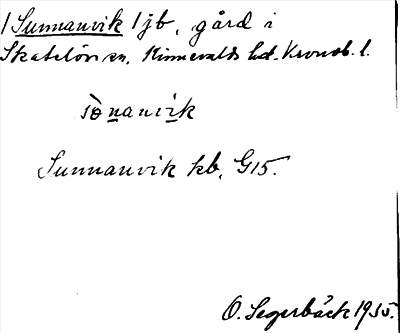 /Sunnanvik/jb, gård i
Skatelövs sn, Kinnevalds hd. Kronob. l.
sònanvik
Sunnanvik kb, G15.
O. Segerbäck 1935.